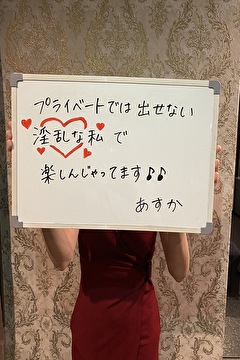 プライベートでは出せない
淫乱な私で
楽しんじゃってます♪♪
あすか